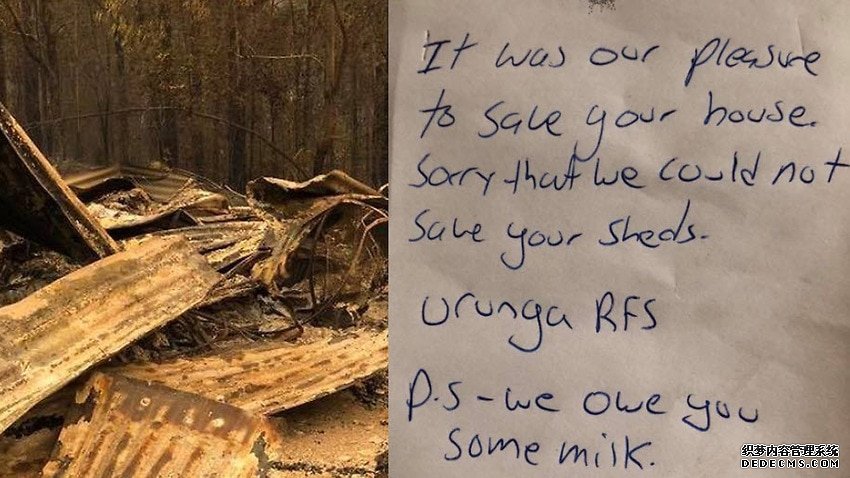 It was our pleasure
to save your house.
Sorry that we could not
save your sheds.
Urunga RFS
P.S - we owe you
some milk.
织梦内容管理系统
DEDECMS.COM